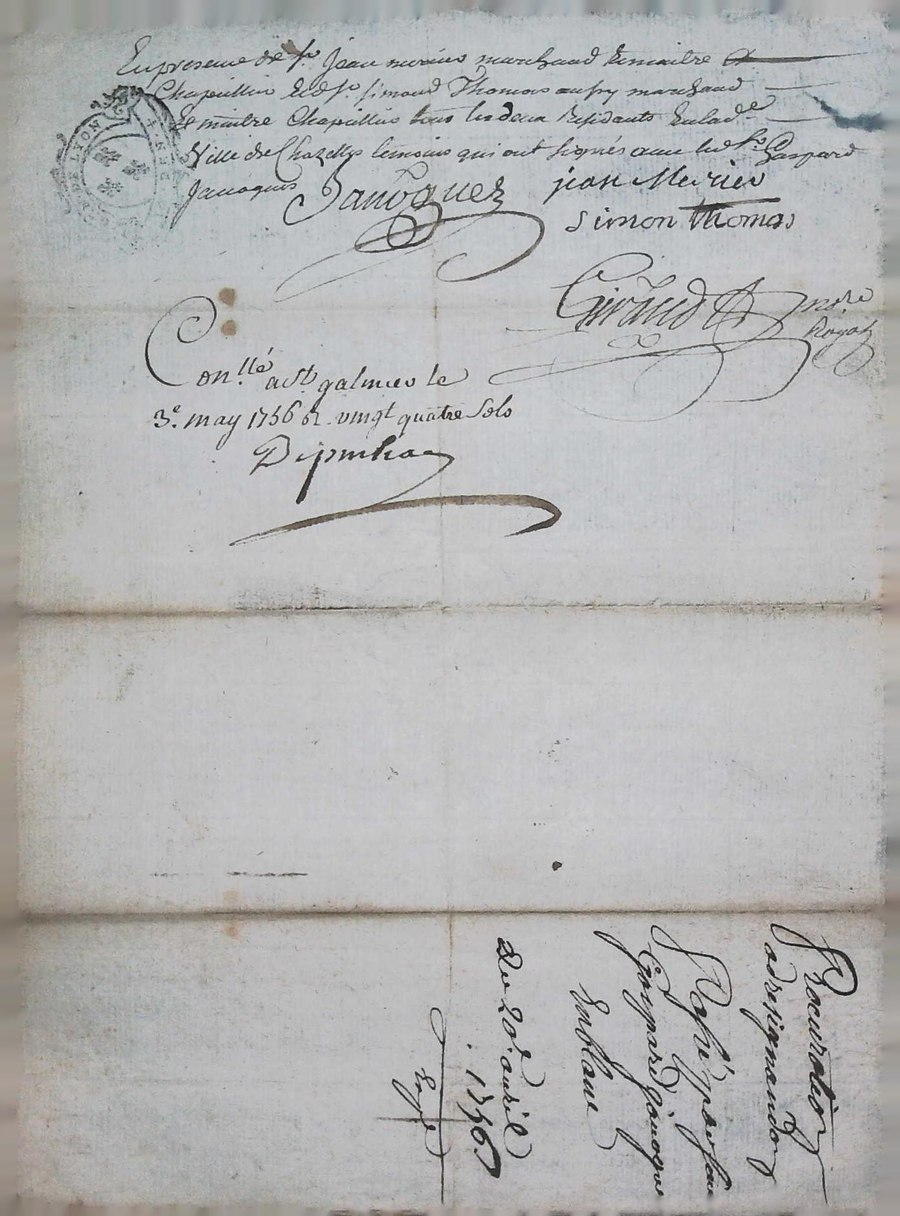 En presence de sr. Jean merier marchand et maitre
Chapellier et de sr. simond Thomas aussy marchand
et maitre Chapellier tous les deux Residants en lade.
Ville de Chazelles temoins qui ont signés avec led. sr. Gaspard
Janoques
Janoques jean Merier
simon thomas
Giraud nore
Royal
GEN DE LYON
Conllé a st. galmier le
3e. may 1756 vingt quatre sols
Procuration
ad resignandum
Passé par sieur
Gaspard Janoques
En blanc
Du 20e avril
1756